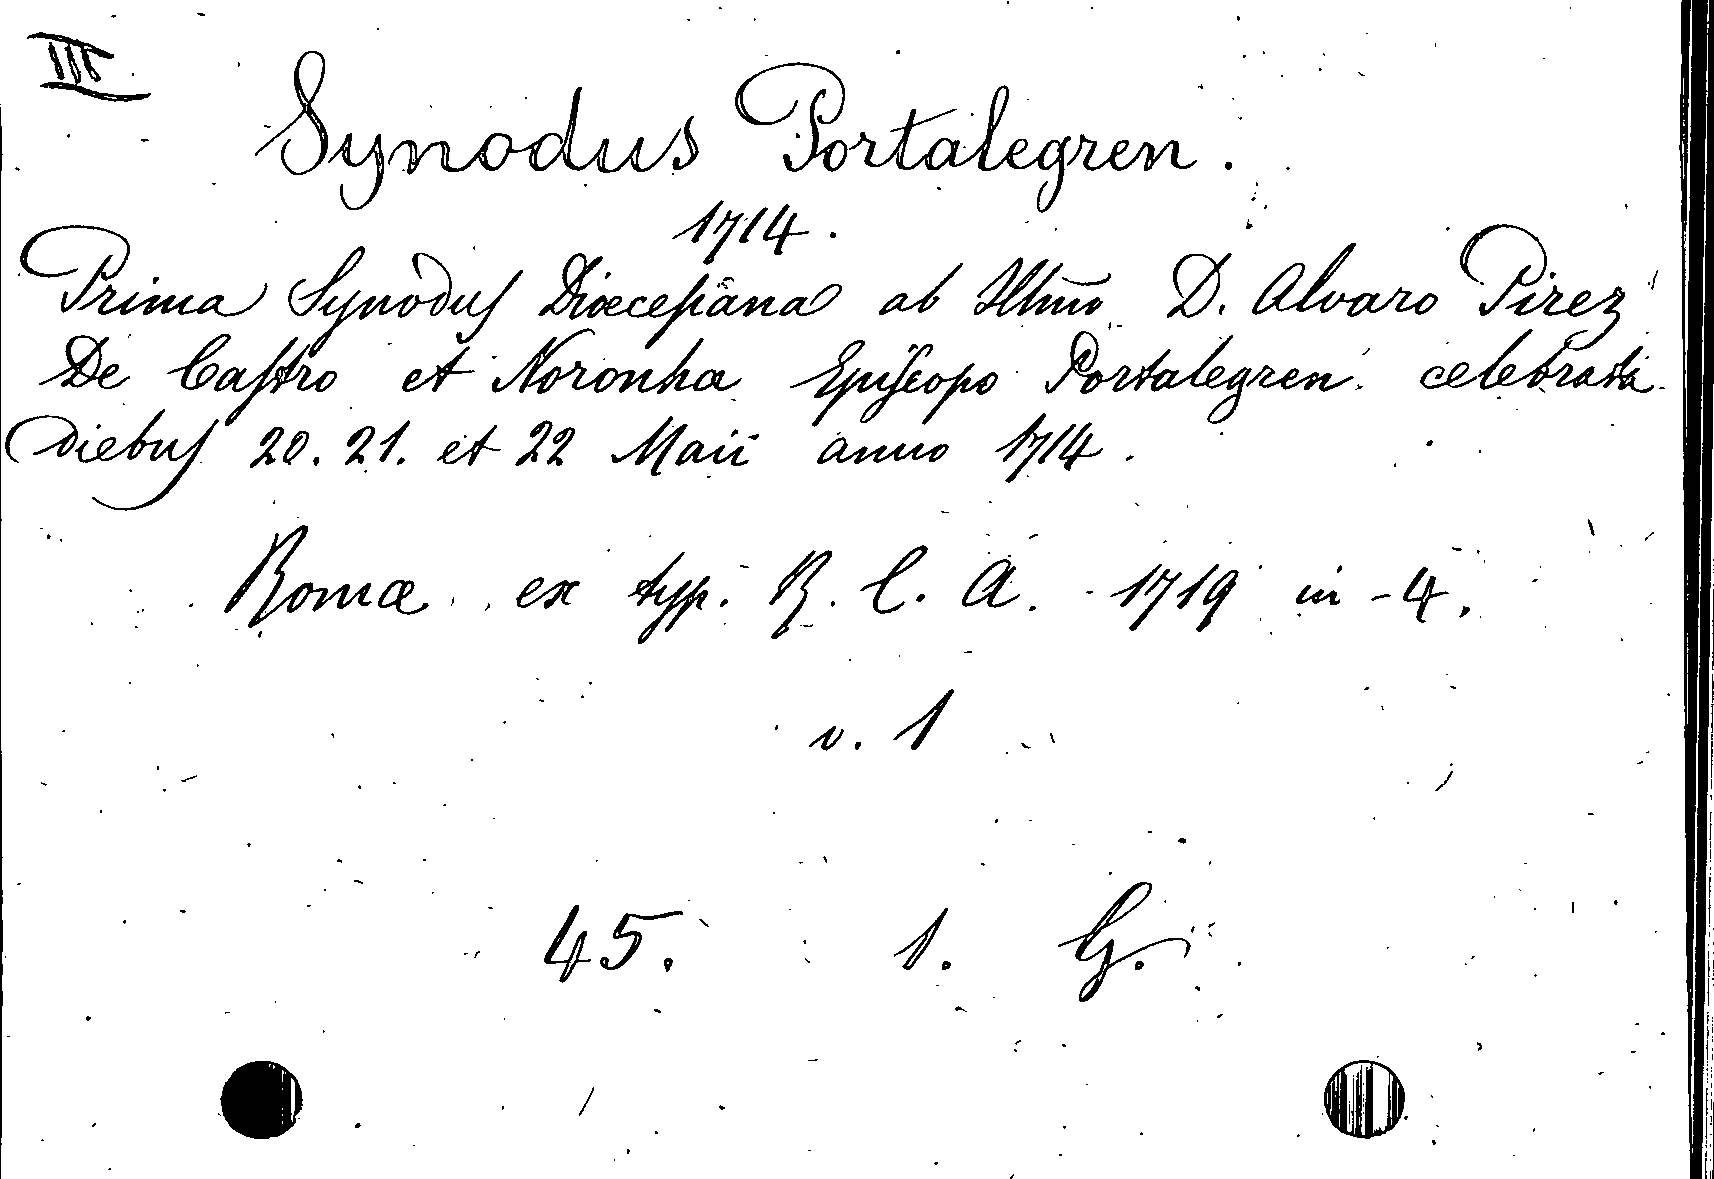 III
Synodus Portalegren.
1714.
Prima Synodus Diœcesana ab Illmo D. Alvaro Pirez
De Castro et Noronha Episcopo Portalegren. celebrata
diebus 20. 21. et 22 Maii anno 1714.
Romæ ex typ. R. C. A. 1719 in-4.
v. 1
45. 1. G.